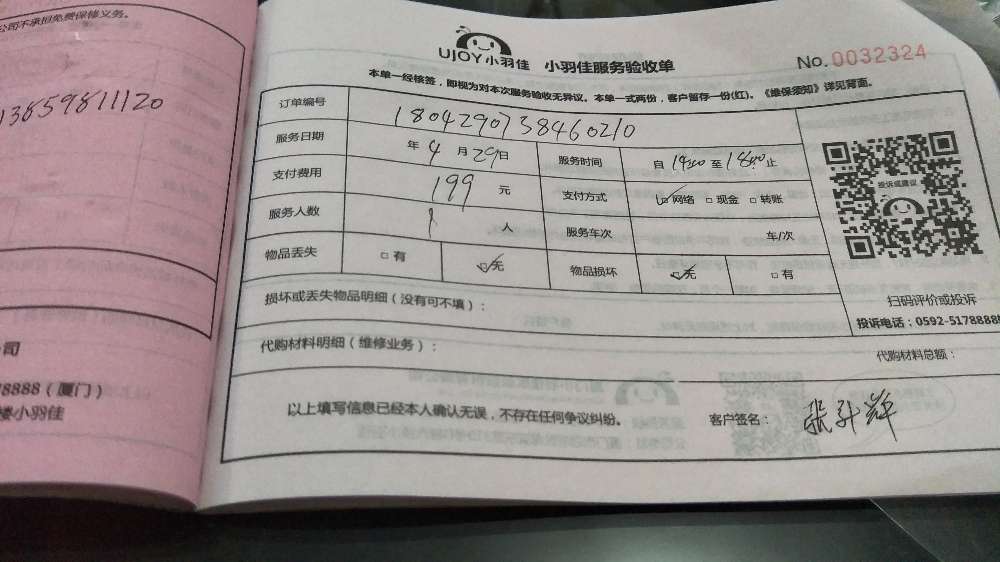 公司不承担免费保修义务。
13859811120
公司
78888（厦门）
楼小羽佳
UJOY小羽佳 小羽佳服务验收单
No.0032324
本单一经核签，即视为对本次服务验收无异议。本单一式两份，客户留存一份(红)。《维保须知》详见背面。
订单编号 1804290738460210
服务日期 年 4 月 29 日 服务时间 自 14:00 至 18:00 止
支付费用 199 元 支付方式 ☑网络 □现金 □转账
服务人数 1 人 服务车次 车/次
物品丢失 □有 ☑无 物品损坏 ☑无 □有
投诉或建议
扫码评价或投诉
投诉电话：0592-5178888
损坏或丢失物品明细（没有可不填）：
代购材料明细（维修业务）：
代购材料总额：
以上填写信息已经本人确认无误，不存在任何争议纠纷。 客户签名： 张升辉